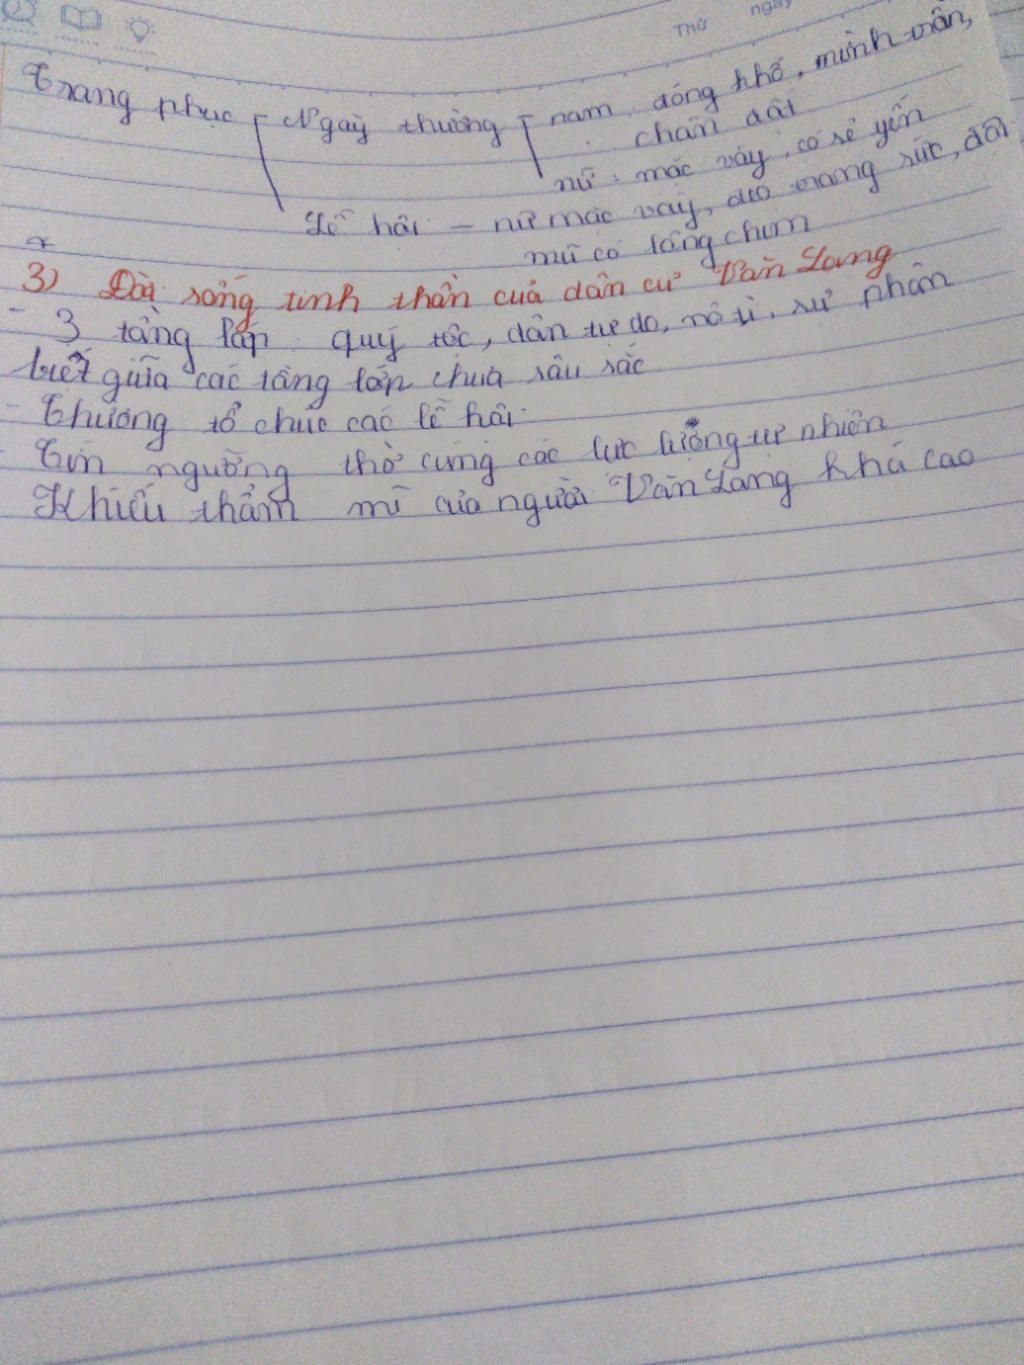 Thứ ngày
Trang phục - Ngày thường - nam: đóng khố, mình trần,
chân đất
nữ: mặc váy, có sẻ yếm
Lễ hội - nữ mặc váy, đeo trang sức, đội
mũ có lông chim
3) Đời sống tinh thần của dân cư Văn Lang
- 3 tầng lớp: quý tộc, dân tự do, nô tì, sự phân
biệt giữa các tầng lớp chưa sâu sắc
- Thường tổ chức các lễ hội
- Tín ngưỡng thờ cúng các lực lượng tự nhiên
Khiếu thẩm mĩ của người Văn Lang khá cao